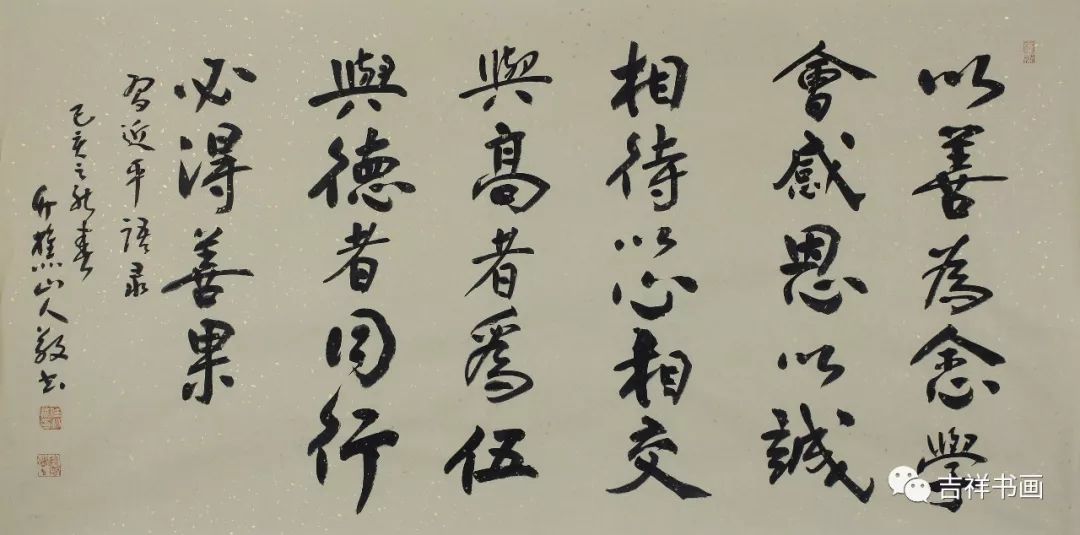 以善為念學
會感恩以誠
相待以心相交
與高者為伍
與德者同行
必得善果
习近平语录
己亥之秋书
山人敬书
吉祥书画